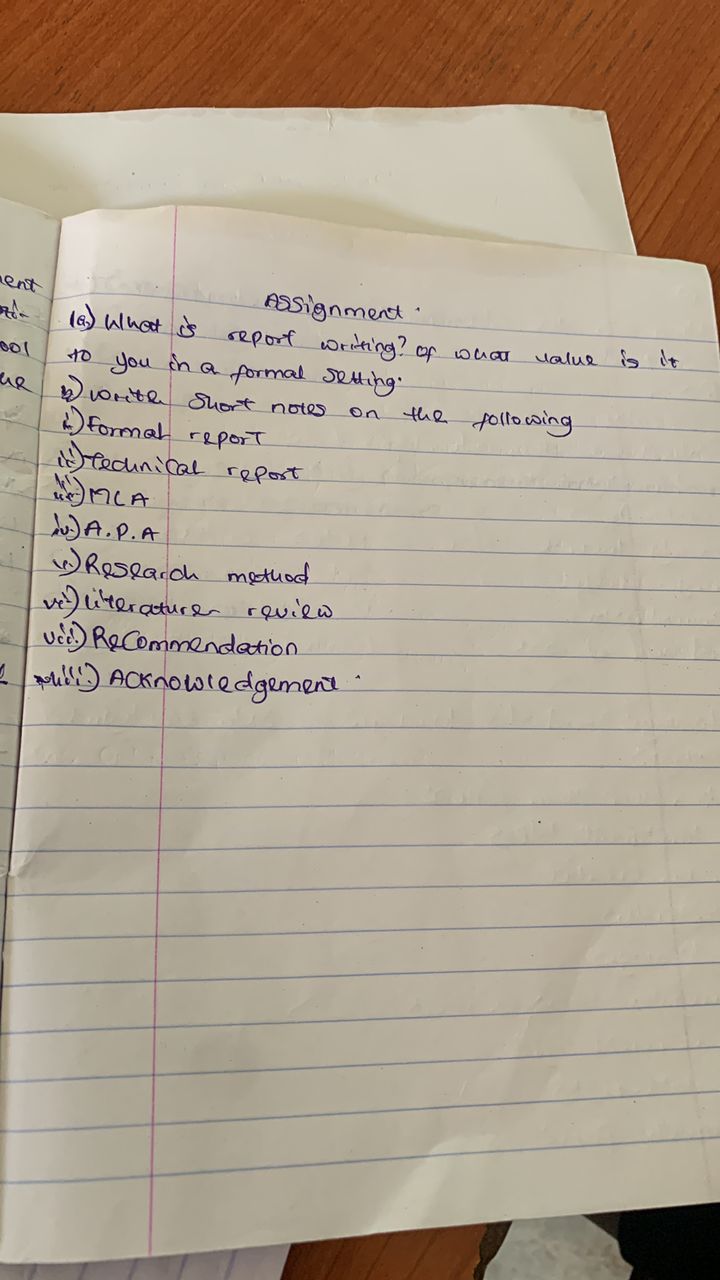 Assignment.
1a) What is report writing? Of what value is it
to you in a formal setting.
b) Write short notes on the following
i.) formal report
ii.) Technical report
iii.) MLA
iv.) A.P.A
v.) Research method
vi.) Literature review
vii.) Recommendation
viii.) Acknowledgement.
ent
ool
ue